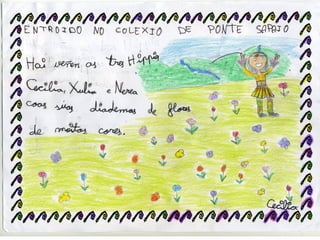 ENTROIDO NO COLEXIO DE PONTE SAPAIO
Hai veren as tres Hippis
Cecilia, Xulia e Nerea
coas súas diademas de flores
de moitas cores.
Cecilia